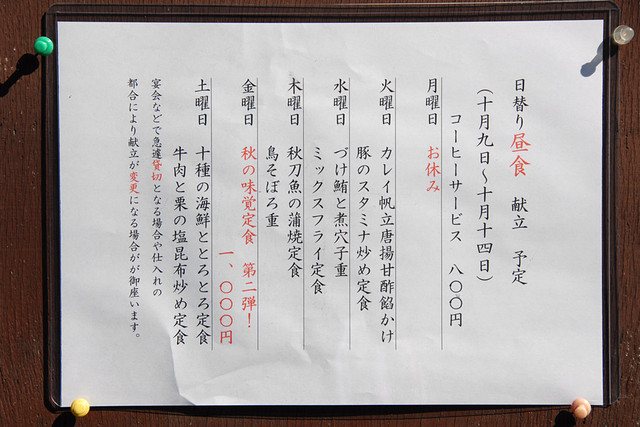 日替り昼食 献立 予定
(十月九日〜十月十四日)
コーヒーサービス 八〇〇円
月曜日 お休み
火曜日 カレイ帆立唐揚甘酢餡かけ
豚のスタミナ炒め定食
水曜日 づけ鮪と煮穴子重
ミックスフライ定食
木曜日 秋刀魚の蒲焼定食
鳥そぼろ重
金曜日 秋の味覚定食 第二弾!
一、〇〇〇円
土曜日 十種の海鮮ととろとろ定食
牛肉と栗の塩昆布炒め定食
宴会などで急遽貸切となる場合や仕入れの
都合により献立が変更になる場合がが御座います。